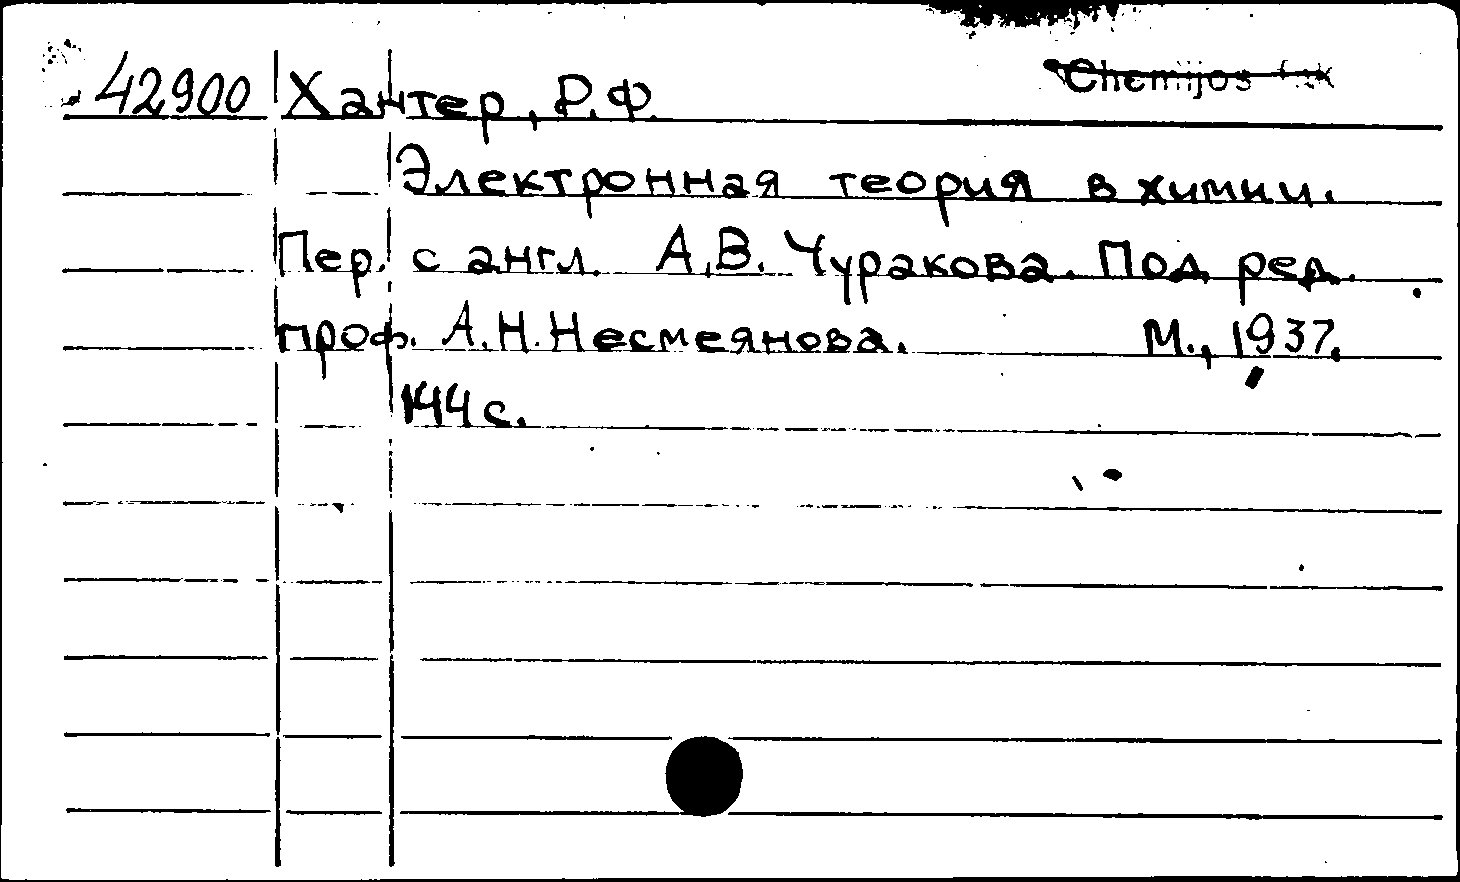 42900 Хантер, Р.Ф. Chemijos fak
Электронная теория в химии.
Пер. с англ. А.В. Чуракова. Под ред.
проф. А.Н. Несмеянова. М., 1937.
144 с.